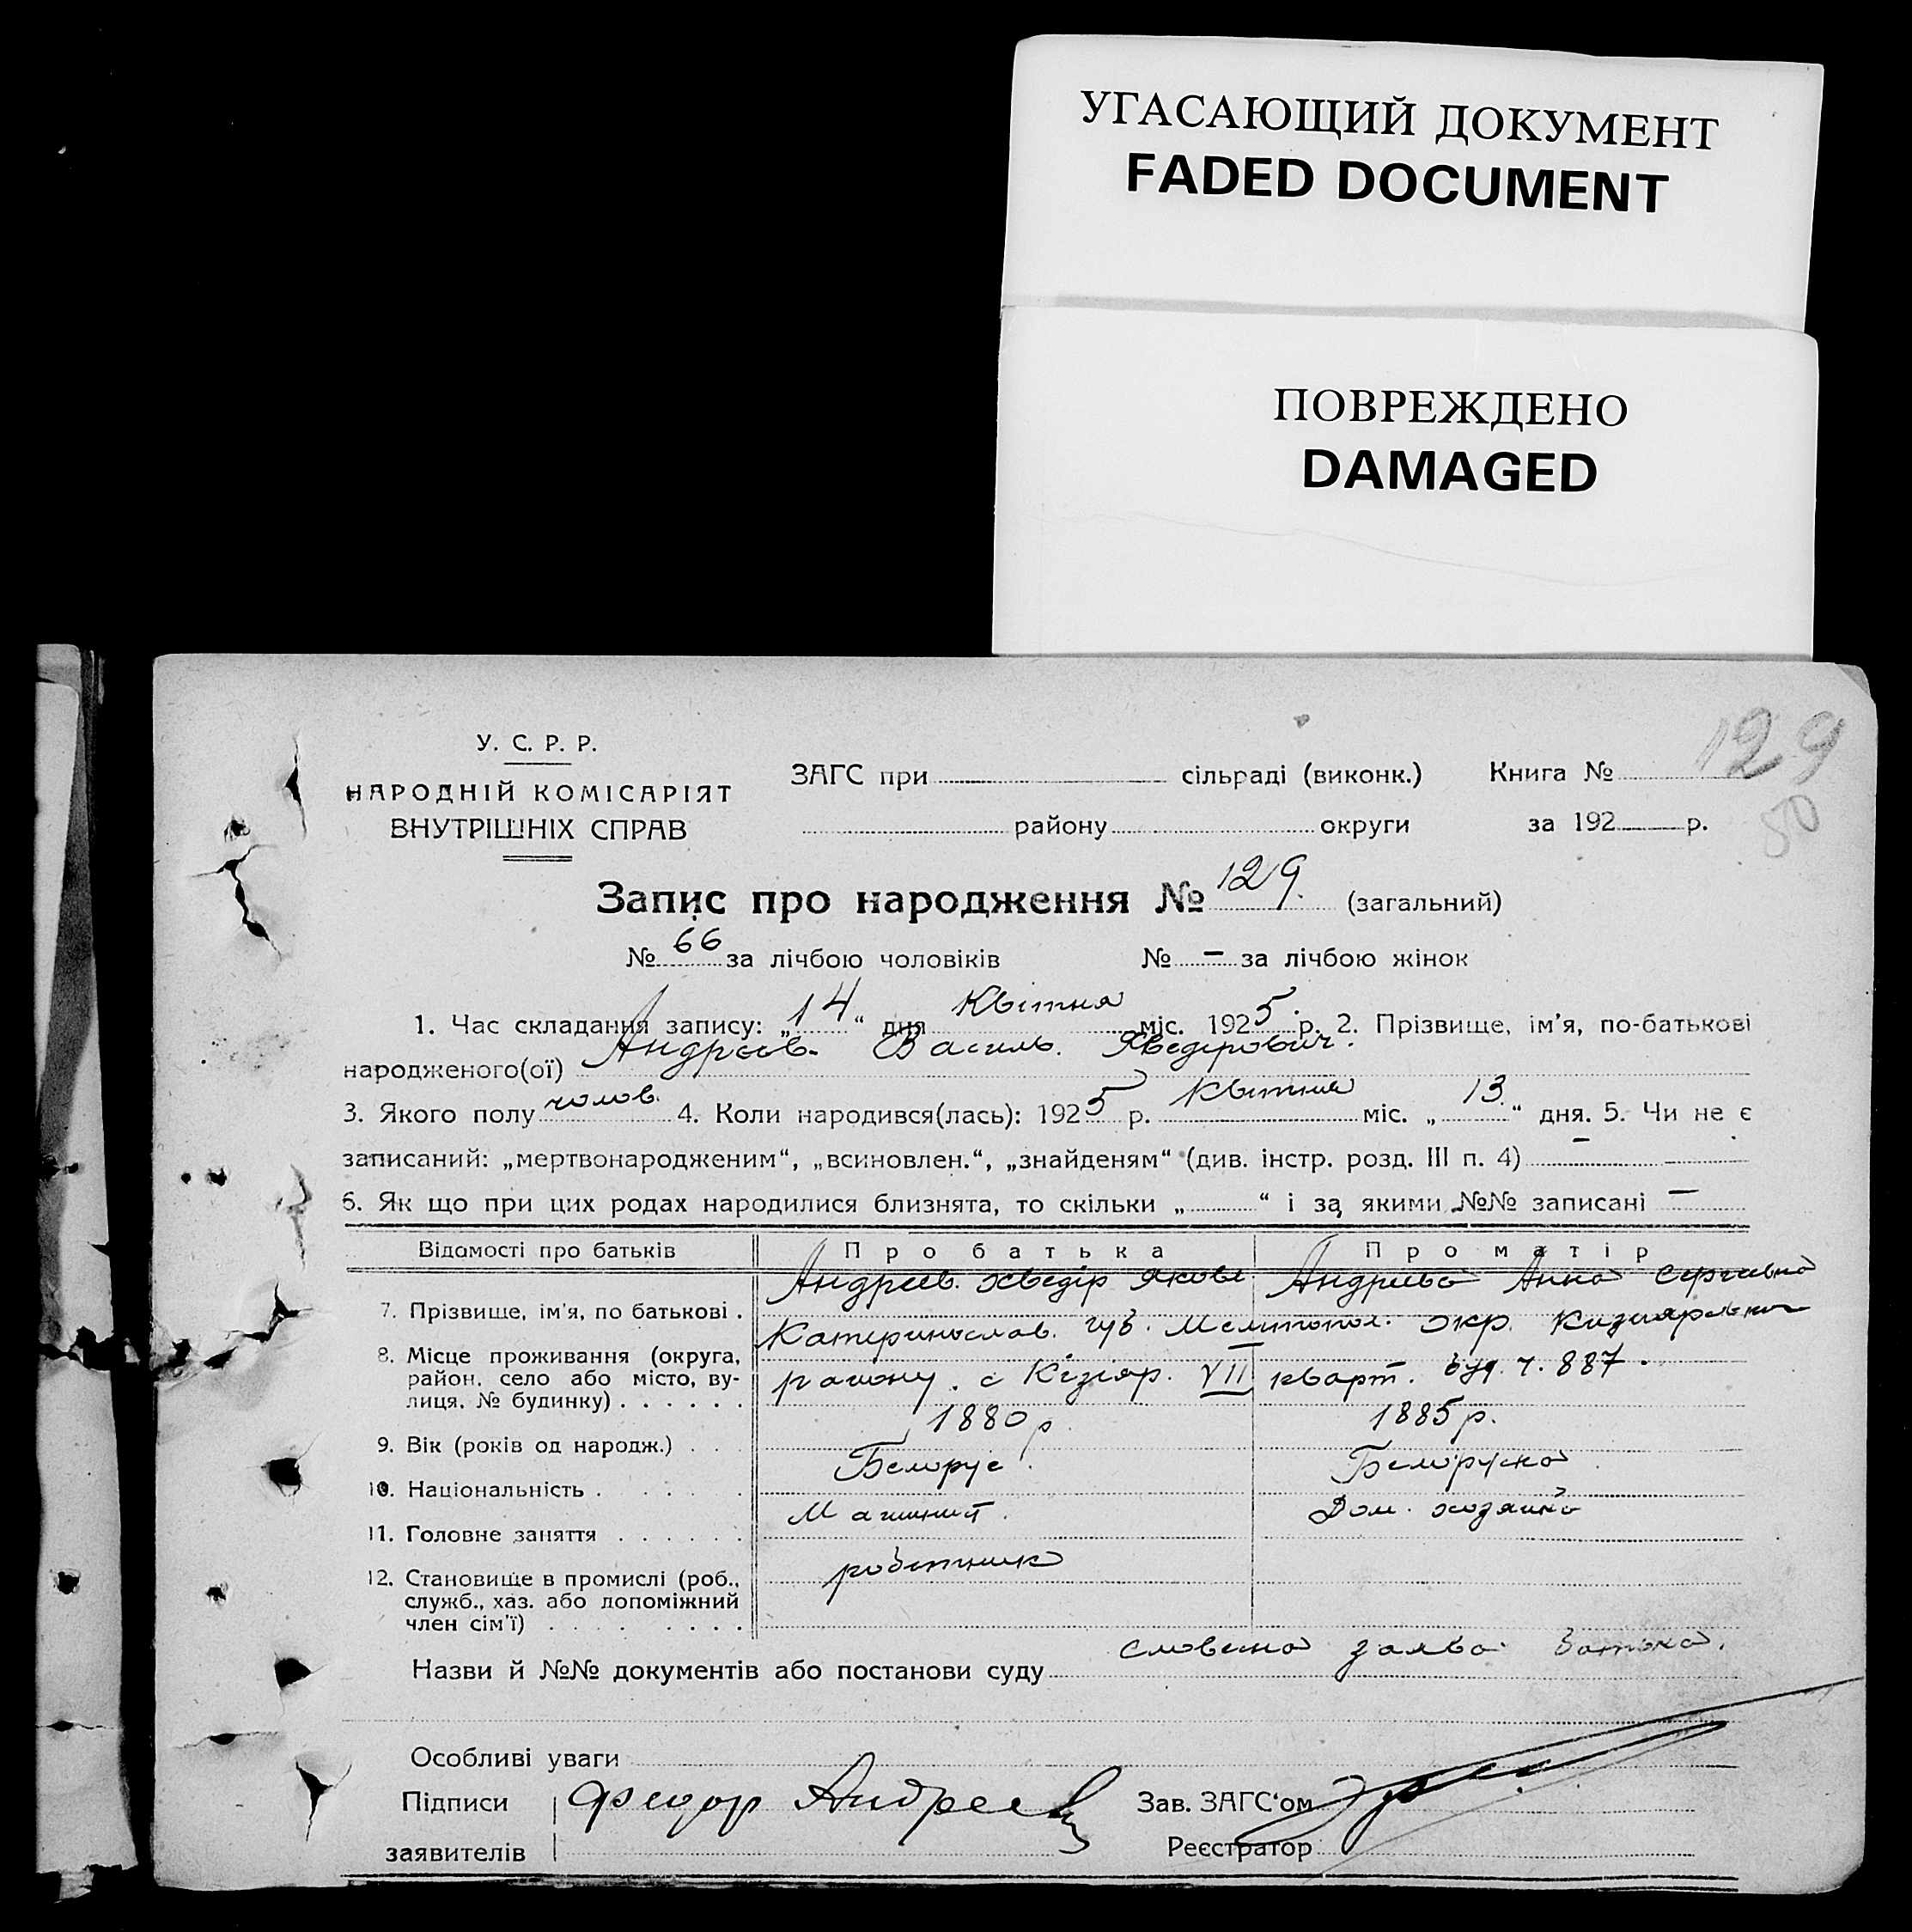 УГАСАЮЩИЙ ДОКУМЕНТ
FADED DOCUMENT
ПОВРЕЖДЕНО
DAMAGED
129
50
У. С. Р. Р.
НАРОДНІЙ КОМІСАРІЯТ
ВНУТРІШНІХ СПРАВ
ЗАГС при сільраді (виконк.) Книга №
району округи за 192 р.
Запис про народження № 129. (загальний)
№ 66 за лічбою чоловіків № — за лічбою жінок
1. Час складання запису: „14“ дня Квітня міс. 1925 р. 2. Прізвище, ім'я, по-батькові
народженого(ої) Андреєв Василь Хведірович.
3. Якого полу чолов. 4. Коли народився(лась): 1925 р. Квітня міс. „13“ дня. 5. Чи не є
записаний: „мертвонародженим“, „всиновлен.“, „знайденям“ (див. інстр. розд. III п. 4) —
6. Як що при цих родах народилися близнята, то скільки „ “ і за якими №№ записані —
Відомості про батьків Про батька Про матір
7. Прізвище, ім'я, по батькові . Андреєв Хведір Якове Андреєва Анна Сергіевна
8. Місце проживання (округа, Катеринослав. губ. Мелітопол. окр. Кизиярськ
район, село або місто, ву- району. с Кізіяр. VII кварт. буд. ч. 887.
лиця, № будинку) . . . . . .
9. Вік (років од народж.) . . . 1880 р. 1885 р.
10. Національність . . . . . Белорус. Белоруска.
11. Головне заняття . . . . . . Машиніст. Дом. хозяйка
12. Становище в промислі (роб., робітник
служб., хаз. або допоміжний
член сім'ї) . . . . . . . .
Назви й №№ документів або постанови суду словесна заява батька.
Особливі уваги
Підписи Федор Андреев Зав. ЗАГС'ом
заявителів Реєстратор